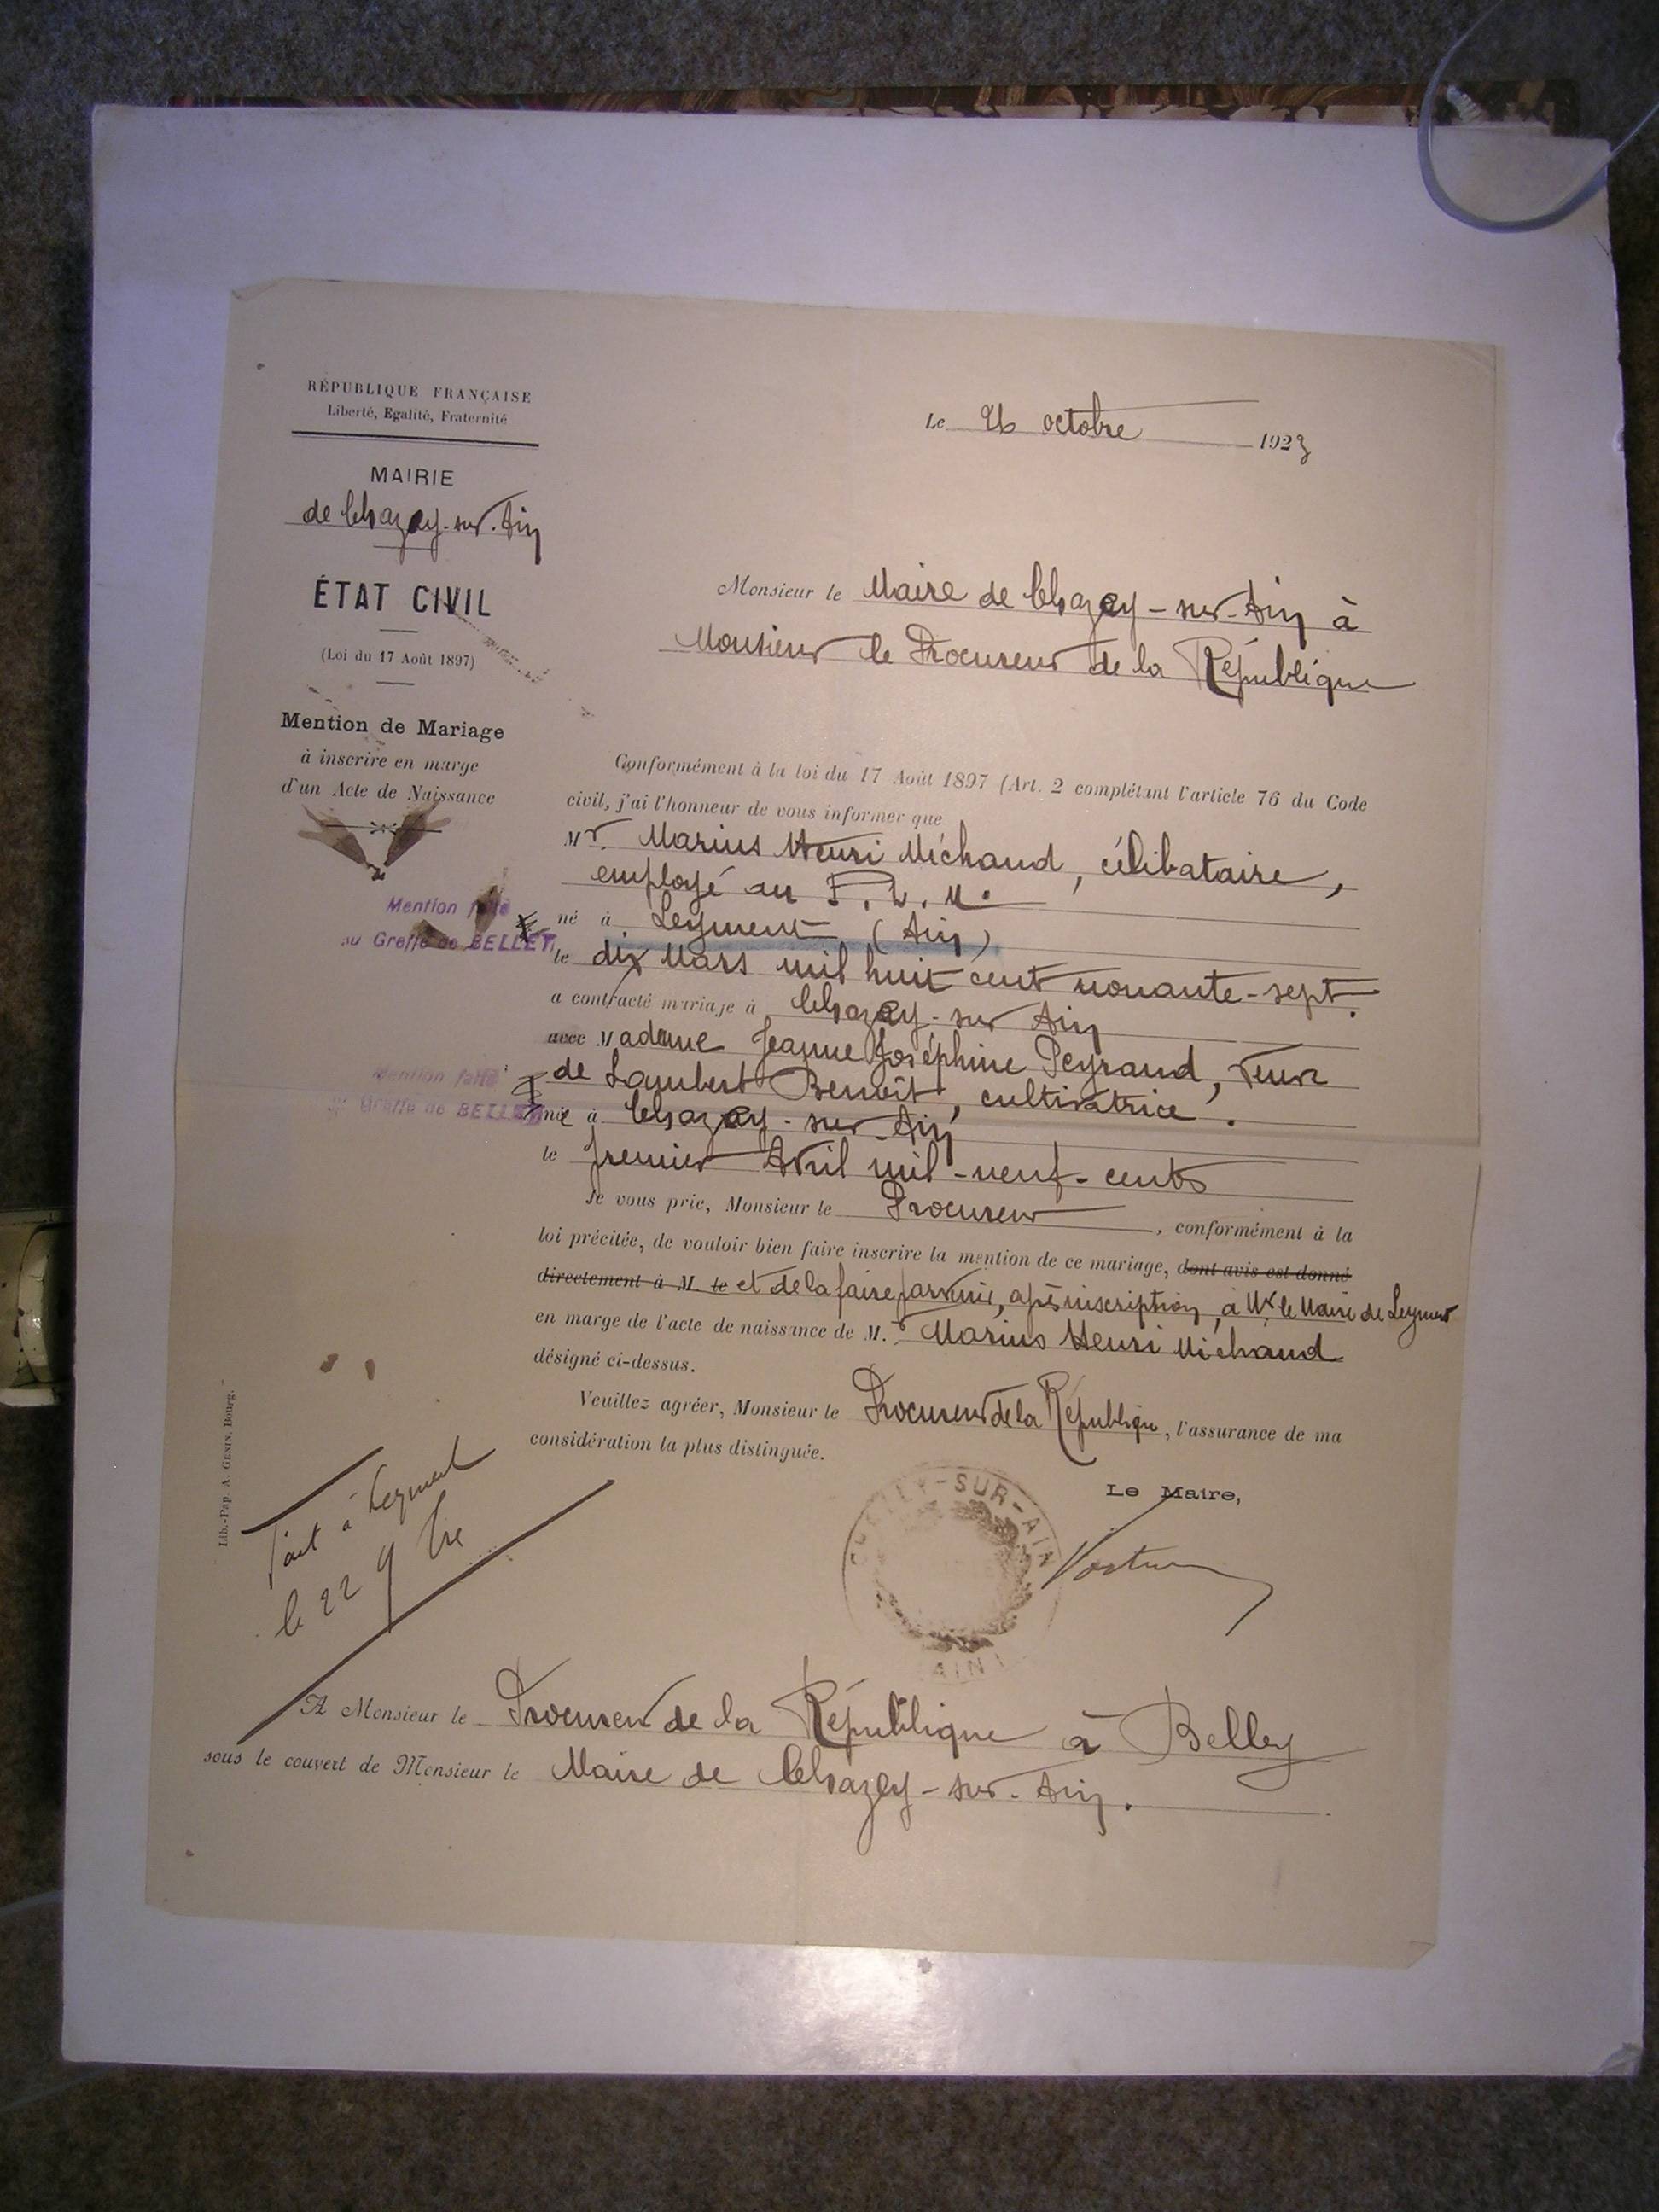 RÉPUBLIQUE FRANÇAISE
Liberté, Egalité, Fraternité
MAIRIE
de Chazey-sur-Ain
ÉTAT CIVIL
(Loi du 17 Août 1897)
Mention de Mariage
à inscrire en marge
d'un Acte de Naissance
Mention faite
au Greffe de BELLEY
Mention faite
au Greffe de BELLEY
Le 26 octobre 1923
Monsieur le Maire de Chazey-sur-Ain à
Monsieur le Procureur de la République
Conformément à la loi du 17 Août 1897 (Art. 2 complétant l'article 76 du Code
civil, j'ai l'honneur de vous informer que
Mr. Marius Henri Michaud, célibataire,
employé au P. L. M.
né à Leyment (Ain)
le dix Mars mil huit cent nonante-sept.
a contracté mariage à Chazey-sur Ain
avec Madame Jeanne Joséphine Peyraud, veuve
de Lambert Benoît, cultivatrice.
née à Chazey-sur-Ain
le premier Avril mil-neuf-cents
Je vous prie, Monsieur le Procureur, conformément à la
loi précitée, de vouloir bien faire inscrire la mention de ce mariage, dont avis est donné
directement à M. le et de la faire parvenir, après inscription, à Mr le Maire de Leyment
en marge de l'acte de naissance de M.r Marius Henri Michaud
désigné ci-dessus.
Veuillez agréer, Monsieur le Procureur de la République, l'assurance de ma
considération la plus distinguée.
Le Maire,
CHAZEY-SUR-AIN
(AIN)
Lib.-Pap. A. GENIN, Bourg.
Fait à Leyment
le 22 9bre
A Monsieur le Procureur de la République à Belley
sous le couvert de Monsieur le Maire de Chazey-sur-Ain.